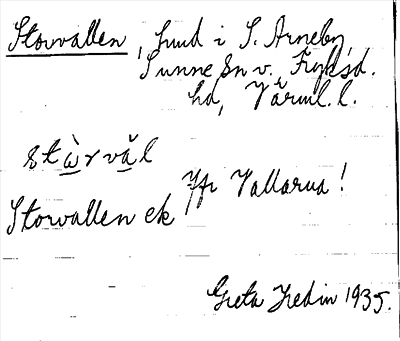 Storvallen, hmd i S. Arneby,
Sunne sn v. Fryksd.
hd, Värml. l.
stẁrväl
Jfr Vallarna!
Storvallen ek
Greta Hedin 1935.